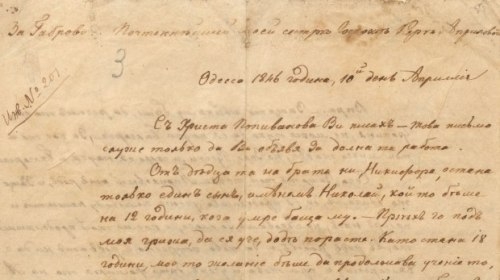 За Габрово. Почтеннѣйшей моей сестрѣ Госпожѣ Априлов
3
Инв. № 201
Одесса 1846 година, 10ий день Априлліа
Съ Христа Попиванова Ви писахъ – Това письмо
служе только да Ви обявя за долната работа.
Отъ дѣцата на брата ни Никифора остана
только единъ сынъ, именемъ Николай, кой то бѣше
на 12 години, кога умре баща му. – Пріехъ го подъ
моя грижа, да ся учи, додѣ порасте. Като стана 18
години, мое то желаніе бѣше да продолжава ученіе то,